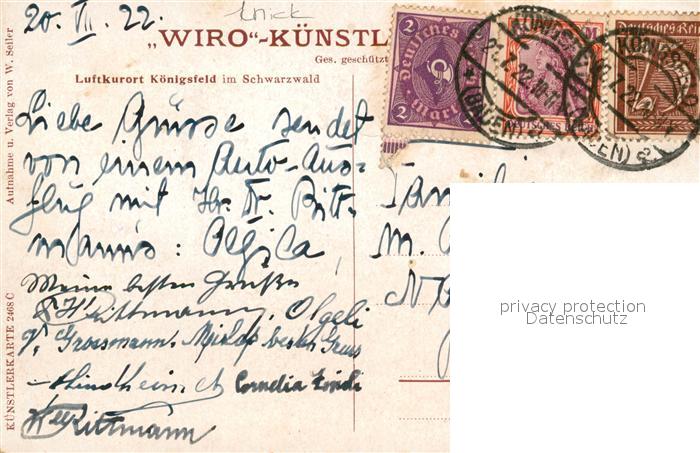 20. VII. 22.
Knick
„WIRO“-KÜNSTL
Ges. geschützt
Luftkurort Königsfeld im Schwarzwald
Liebe Grüsse sendet
von einem Auto-Aus-
flug mit Hr. Dr. Ritt-
manns: Olgila,
Meine besten Grüße
Rittmann. Olgeli
Grossmann. besten Gruss
Cornelia
Rittmann
Familie
M.
N
Aufnahme u. Verlag von W. Seiler
KÜNSTLERKARTE 2468 C
2 Deutsches Reich 2
Mark
DEUTSCHES REICH
Deutsches Reich
KÖNIGSFELD
(BADEN)
privacy protection
Datenschutz